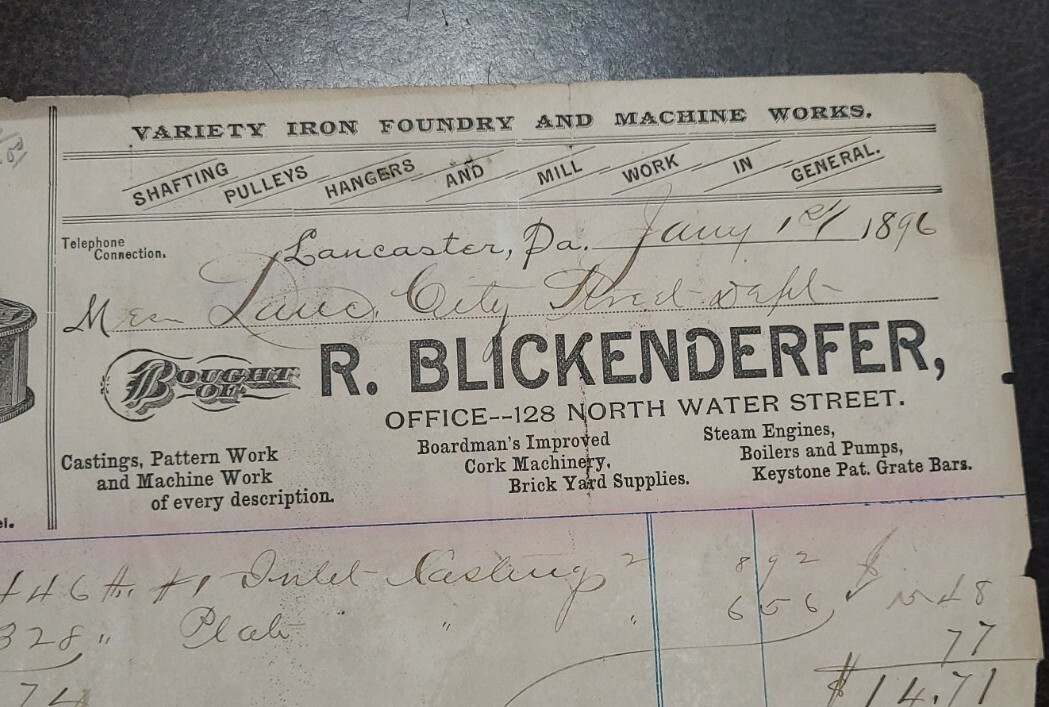 VARIETY IRON FOUNDRY AND MACHINE WORKS.
SHAFTING PULLEYS HANGERS AND MILL WORK IN GENERAL.
Telephone Connection.
Lancaster, Pa. Jany 1st 1896
M Lanc. City Street Dept
BOUGHT OF R. BLICKENDERFER,
OFFICE--128 NORTH WATER STREET.
Castings, Pattern Work
and Machine Work
of every description.
Boardman's Improved
Cork Machinery,
Brick Yard Supplies.
Steam Engines,
Boilers and Pumps,
Keystone Pat. Grate Bars.
el.
446 #1 Inlet Casting 2 8 92
328 " Plate " " 6 56 48
77
74 $14.71